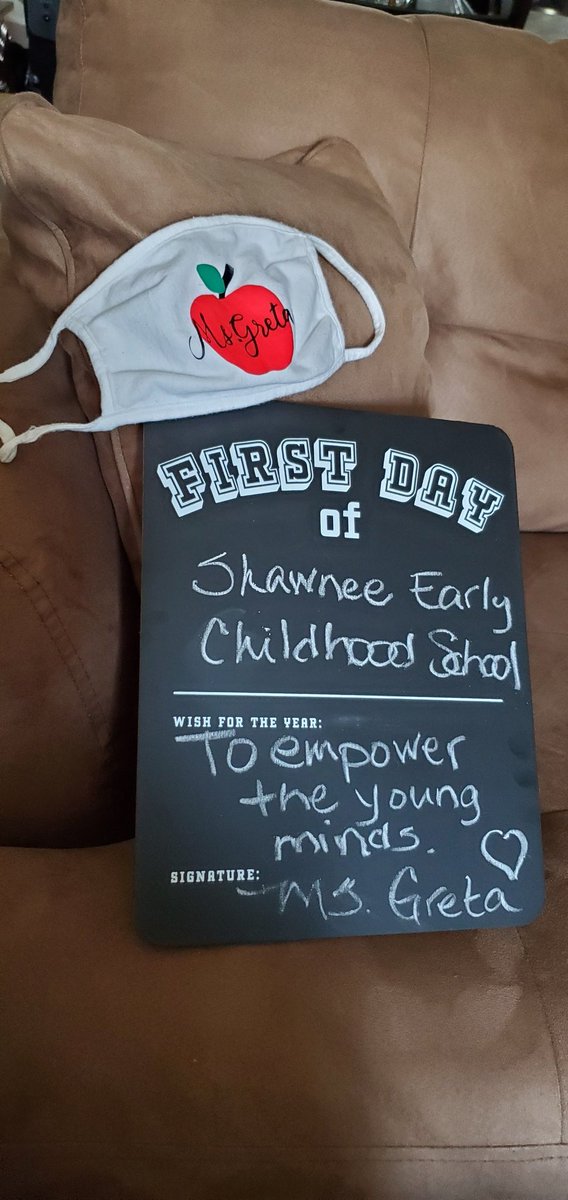 Ms. Greta
FIRST DAY
of
Shawnee Early
Childhood School
WISH FOR THE YEAR:
To empower
the young
minds.
SIGNATURE:
-Ms. Greta